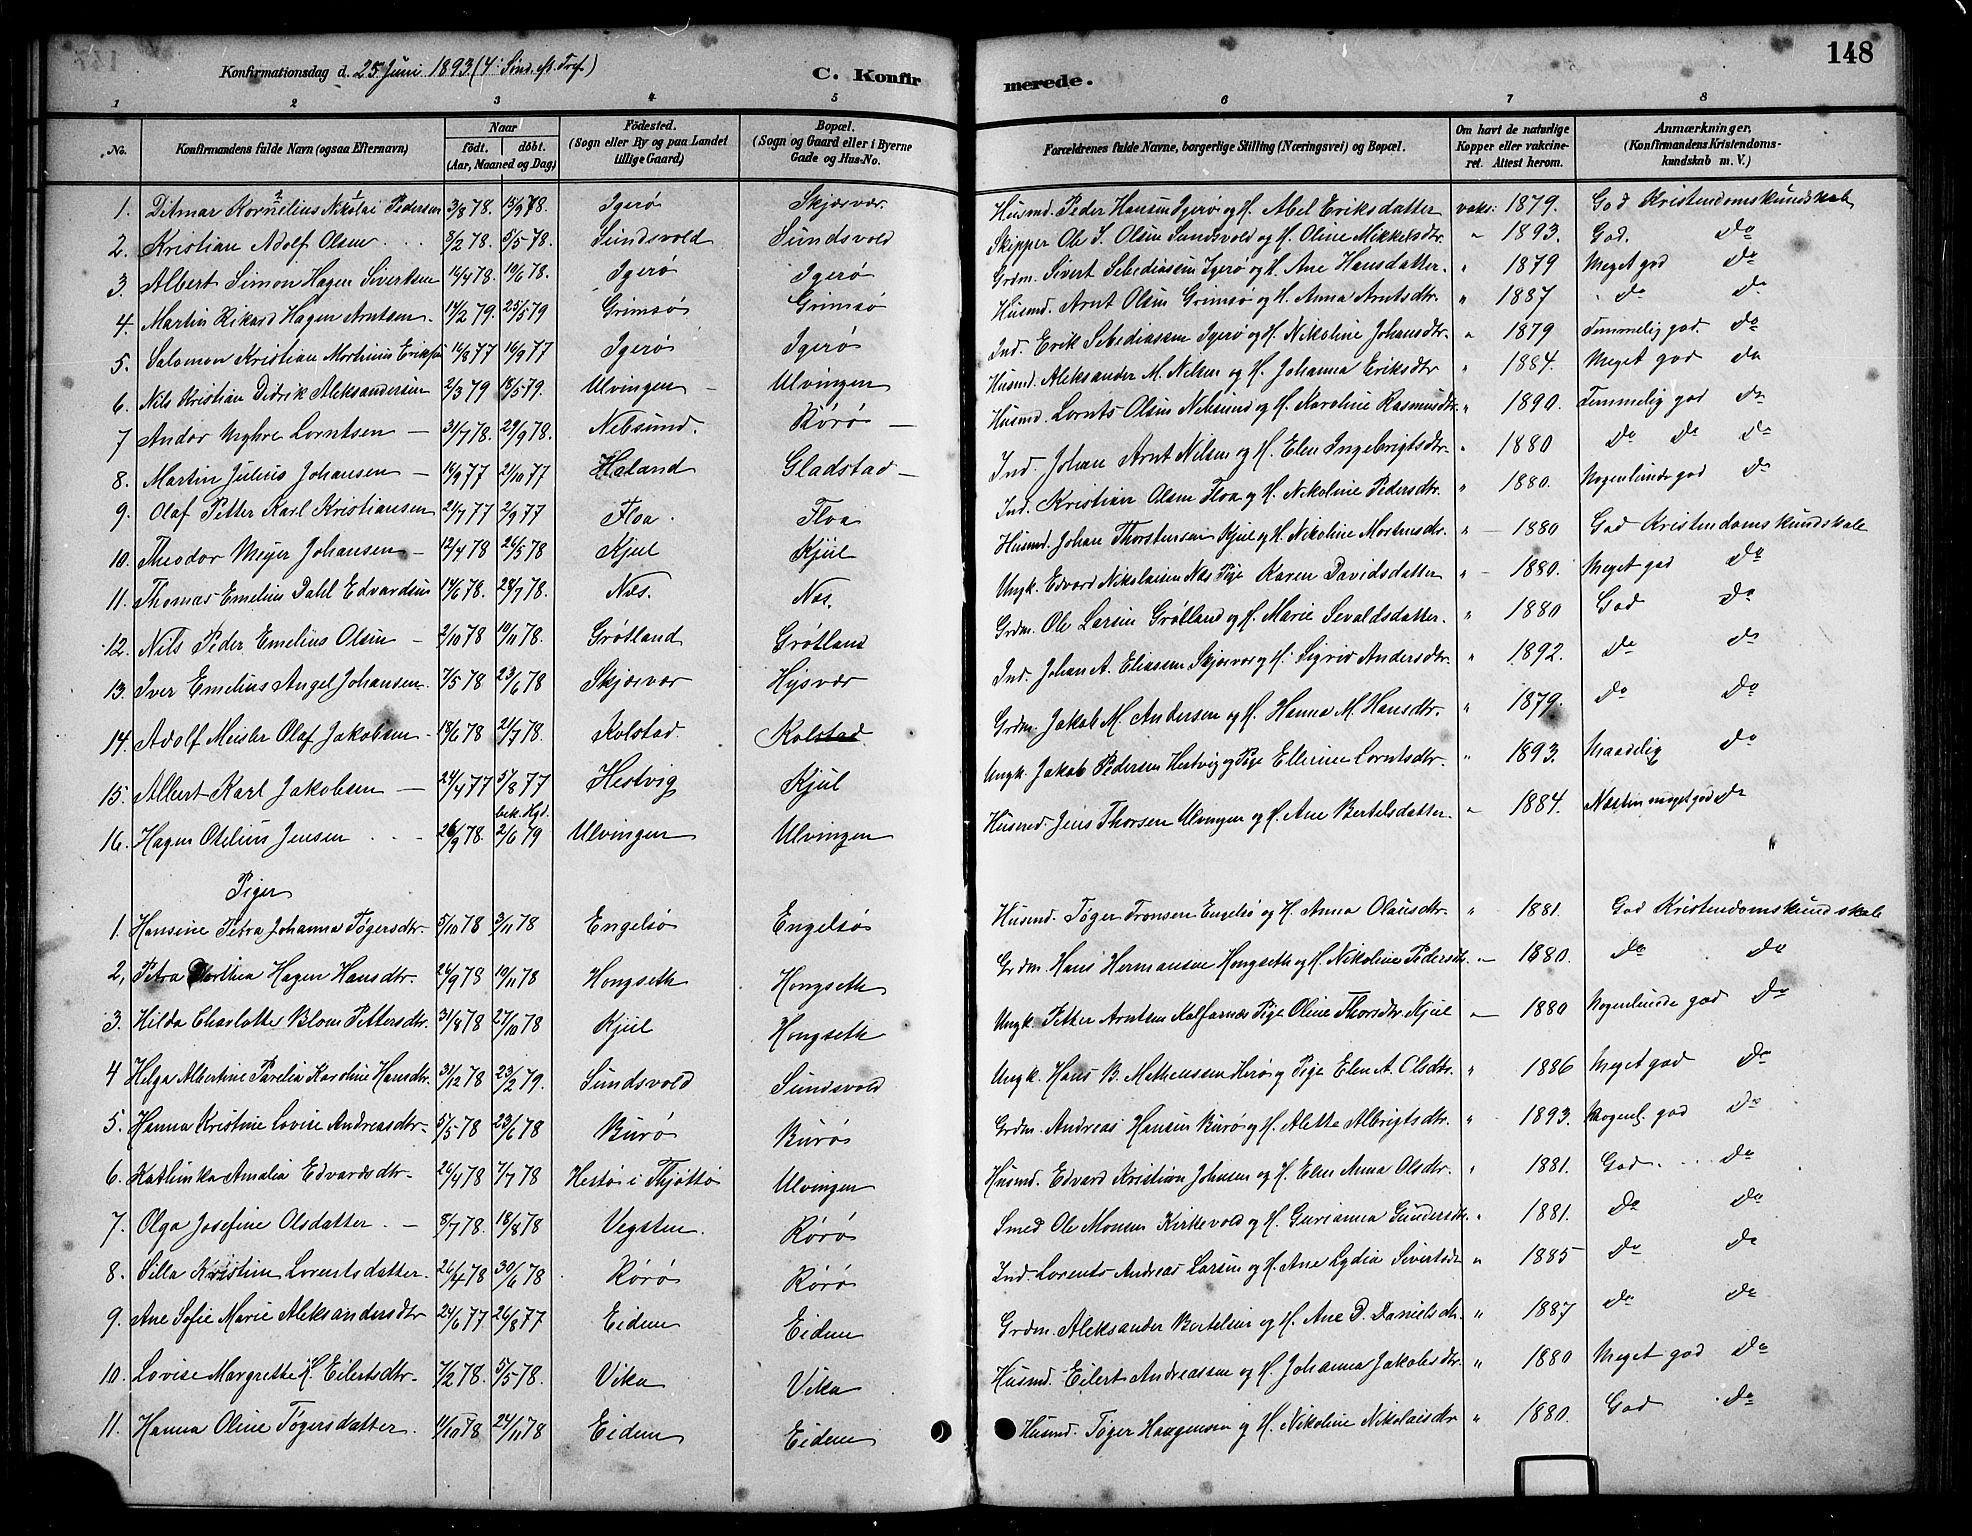 148
Konfirmationsdag d. 25 Juni 1893 (4: Sønd. eft. Tref.)
C. Konfirmerede.
1 2 3 4 5 6 7 8
No. Konfirmandens fulde Navn (ogsaa Efternavn) Naar født. døbt. (Aar, Maaned og Dag) Fødested. (Sogn eller By og paa Landet tillige Gaard) Bopæl. (Sogn og Gaard eller i Byerne Gade og Hus-No. Forældrenes fulde Navne, borgerlige Stilling (Næringsvei) og Bopæl. Om havt de naturlige Kopper eller vakcineret. Attest herom. Anmærkninger. (Konfirmandens Kristendomskundskab m. V.)
1. Ditmar Kornelius Nikolai Pedersen 3/8 78. 15/9 78. Igerø Skjærvær Husmd. Peder Hansen Igerø og H. Abel Eriksdatter vaks: 1879. God Kristendomskundskab
2. Kristian Adolf Olsen 8/2 78. 5/5 78. Sundsvold Sundsvold Skipper Ole S. Olsen Sundsvold og H. Oline Mikkelsdtr. " 1893. God. do
3. Albert Simon Hagen Sivertsen 16/4 78. 10/6 78. Igerø Igerø Grdm. Sivert Sebediassen Igerø og H. Ane Hansdatter. " 1879 Meget god do
4. Martin Rikard Hagen Arntsen. 14/2 79. 25/5 79 Grimsø Grimsø Husmd. Arnt Olsen Grimsø og H. Anna Arntsdtr. " 1887 do do
5. Salomon Kristian Mortinus Eriksen 16/8 77 16/9 77 Igerø Igerø Ind. Erik Sebediassen Igerø og H. Nikoline Johansdtr. " 1879 Temmelig god. do
6. Nils Kristian Didrik Aleksandersen 2/3 79 18/5 79. Ulvingen Ulvingen Husmd. Aleksander M. Nelsen og H. Johanna Eriksdtr " 1884. Meget god do
7 Andor Myhre Lorntsen 31/7 78. 29/9 78. Nebsund. Rørø Husmd. Lornts Olsen Nebsund og H. Karoline Rasmusdtr. " 1890. Temmelig god do
8. Martin Julius Johansen 14/9 77 21/10 77 Haland Gladstad Ind. Johan Arnt Nilsen og H. Elen Ingebrigtsdtr. " 1880 do do do
9. Olaf Petter Karl Kristiansen 21/7 77 2/9 77 Floa. Floa Ind. Kristian Olsen Floa og H. Nikoline Pedersdtr. " 1880. Nogenlunde god do
10. Theodor Meyer Johansen 12/4 78 26/5 78 Kjul Kjul Husmd. Johan Thorstensen Kjul og H. Nikoline Mortensdtr. " 1880 God Kristendomskundskab
11. Thomas Emelius Dahl Edvardsen 14/6 78. 28/7 78. Næs. Næs. Ungk. Edvard Nikolaisen Næs Pige Karen Davidsdatter " 1880. Meget god do
12. Nils Peder Emelius Olsen 2/10 78 10/11 78. Grøtland Grøtland Grdm. Ole Larsen Grøtland og H. Marie Sevaldsdatter. " 1880 God do
13. Iver Emelius Angel Johansen. 7/5 78 23/6 78 Skjærvær Hysvær Ind. Johan A. Eliassen Skjærvær og H. Sigrid Andersdtr. " 1892. do do
14. Adolf Meisler Olaf Jakobsen 18/6 78 21/7 78. Kolstad. Kolstad Grdm. Jakob M. Andersen og H. Hanna M. Hansdtr. " 1879. do do
15. Albert Karl Jakobsen 24/4 77 5/8 77 Hestvig Kjul Ungk. Jakob Pedersen Hestvig og Pige Ellerine Lorntsdtr. " 1893. Maadelig do
bek. Kgt.
16. Hagen Otelius Jensen 26/9 78. 2/6 79 Ulvingen Ulvingen Husmd. Jens Thorsen Ulvingen og H. Ane Bertelsdatter. " 1884. Næsten meget god do
Piger
1. Hansine Petra Johanna Tøgersdtr. 5/10 78 3/11 78 Engelsø Engelsø Husmd. Tøger Tronsen Engelsø og H. Anna Olausdtr. " 1881. God Kristendomskundskab
2, Petra Dorthea Hagen Hansdtr. 26/9 78 10/11 78 Hongseth Hongseth Grdm. Hans Hermansen Hongseth og H. Nikoline Pedersdtr. 1880. do do
3. Hilda Charlotte Blom Pettersdtr. 31/8 78 27/10 78 Kjul Hongseth Ungk. Petter Arntsen Kalfarnæs Pige Oline Thorsdtr. Kjul 1880 Nogenlunde god do
4 Helga Albertine Parelia Karoline Hansdtr. 31/12 78 23/2 79. Sundsvold Sundsvold Ungk. Hans B. Matheussen Herø og Pige Elen A. Olsdtr. " 1886 Meget god do
5. Hanna Kristine Lovise Andreasdtr. 5/5 78 23/6 78 Burø Burø Grdm. Andreas Hansen Burø og H. Alette Albrigtsdtr. " 1893. Nogenl. god do
6. Kathinka Amalia Edvardsdtr. 26/4 78 7/7 78 Hestø i Thjøttø Ulvingen Husmd. Edvard Kristian Johnsen og H. Elen Anna Olsdtr. " 1881. God. do
7. Olga Josefine Olsdatter. 8/7 78. 18/8 78 Vegsten. Rørø Smed Ole Monsen Kirkevold og H. Gurianna Gundersdtr. " 1881. do do
8. Silla Kristine Lorentsdatter. 26/4 78 30/6 78 Rørø Rørø Ind. Lorents Andreas Larsen og H. Ane Lydia Sivertsdtr " 1885 do do
9. Ane Sofie Marie Aleksandersdtr 24/6 77 26/8 77 Eidem Eidem Grdm. Aleksander Bertelsen og H. Ane D. Danielsdtr. " 1887 do do
10. Lovise Margrethe H. Eilertsdtr. 7/2 78. 5/5 78. Vika Vika Husmd. Eilert Andreassen og H. Johanna Jakobsdtr. " 1880 Meget god do
11. Hanna Oline Tøgersdatter. 11/10 78 24/11 78 Eidem Eidem Husmd. Tøger Haagensen og H. Nikoline Nikolaisdtr " 1880. God do